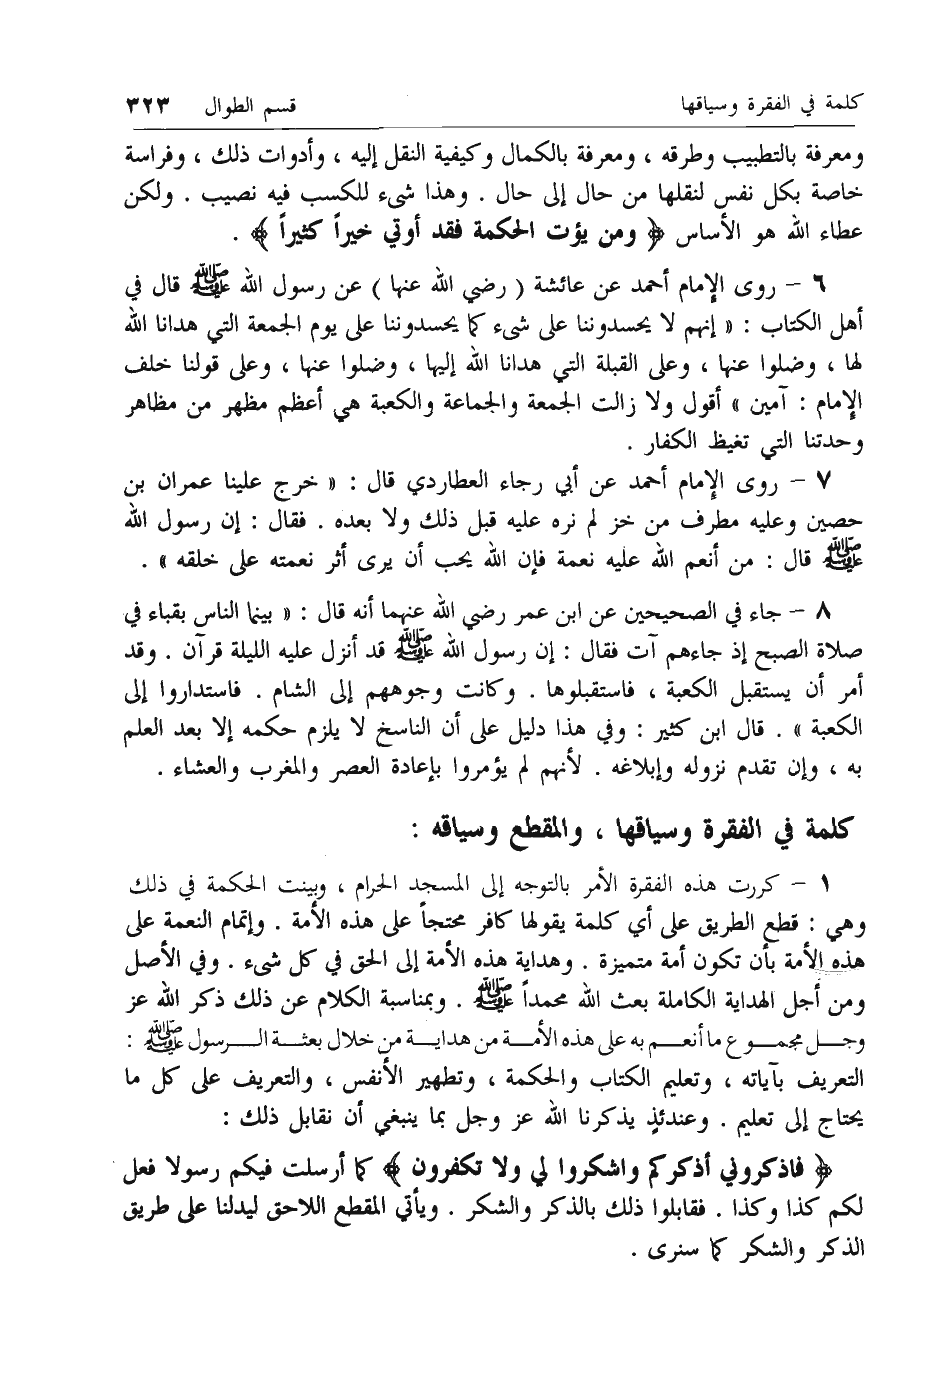 كلمة في الفقرة وسياقها قسم الطوال ٣٢٣
ومعرفة بالتطبيب وطرقه ، ومعرفة بالكمال وكيفية النقل إليه ، وأدوات ذلك ، وفراسة
خاصة بكل نفس لنقلها من حال إلى حال . وهذا شىء للكسب فيه نصيب . ولكن
عطاء الله هو الأساس ﴿ ومن يؤت الحكمة فقد أوتي خيراً كثيراً ﴾ .
٦ - روى الإمام أحمد عن عائشة ( رضي الله عنها ) عن رسول الله ﷺ قال في
أهل الكتاب : « إنهم لا يحسدوننا على شىء كما يحسدوننا على يوم الجمعة التي هدانا الله
لها ، وضلوا عنها ، وعلى القبلة التي هدانا الله إليها ، وضلوا عنها ، وعلى قولنا خلف
الإمام : آمين » أقول ولا زالت الجمعة والجماعة والكعبة هي أعظم مظهر من مظاهر
وحدتنا التي تغيظ الكفار .
٧ - روى الإمام أحمد عن أبي رجاء العطاردي قال : « خرج علينا عمران بن
حصين وعليه مطرف من خز لم نره عليه قبل ذلك ولا بعده . فقال : إن رسول الله
ﷺ قال : من أنعم الله عليه نعمة فإن الله يحب أن يرى أثر نعمته على خلقه » .
٨ - جاء في الصحيحين عن ابن عمر رضي الله عنهما أنه قال : « بينما الناس بقباء في
صلاة الصبح إذ جاءهم آت فقال : إن رسول الله ﷺ قد أنزل عليه الليلة قرآن . وقد
أمر أن يستقبل الكعبة ، فاستقبلوها . وكانت وجوههم إلى الشام . فاستداروا إلى
الكعبة » . قال ابن كثير : وفي هذا دليل على أن الناسخ لا يلزم حكمه إلا بعد العلم
به ، وإن تقدم نزوله وإبلاغه . لأنهم لم يؤمروا بإعادة العصر والمغرب والعشاء .
كلمة في الفقرة وسياقها ، والمقطع وسياقه :
١ - كررت هذه الفقرة الأمر بالتوجه إلى المسجد الحرام ، وبينت الحكمة في ذلك
وهي : قطع الطريق على أي كلمة يقولها كافر محتجاً على هذه الأمة . وإتمام النعمة على
هذه الأمة بأن تكون أمة متميزة . وهداية هذه الأمة إلى الحق في كل شىء . وفي الأصل
ومن أجل الهداية الكاملة بعث الله محمداً ﷺ . وبمناسبة الكلام عن ذلك ذكر الله عز
وجـل مجمـوع ما أنعـم به على هذه الأمـة من هدايـة من خلال بعثـة الـرسول ﷺ :
التعريف بآياته ، وتعليم الكتاب والحكمة ، وتطهير الأنفس ، والتعريف على كل ما
يحتاج إلى تعليم . وعندئذٍ يذكرنا الله عز وجل بما ينبغي أن نقابل ذلك :
﴿ فاذكروني أذكركم واشكروا لي ولا تكفرون ﴾ كما أرسلت فيكم رسولا فعل
لكم كذا وكذا . فقابلوا ذلك بالذكر والشكر . ويأتي المقطع اللاحق ليدلنا على طريق
الذكر والشكر كما سنرى .